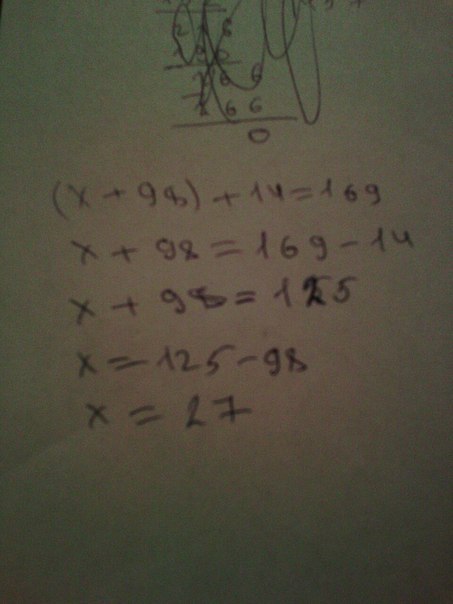 2 7 6
7 6 6
7 6 6
0
(x + 98) + 14 = 169
x + 98 = 169 - 14
x + 98 = 125
x = 125 - 98
x = 27